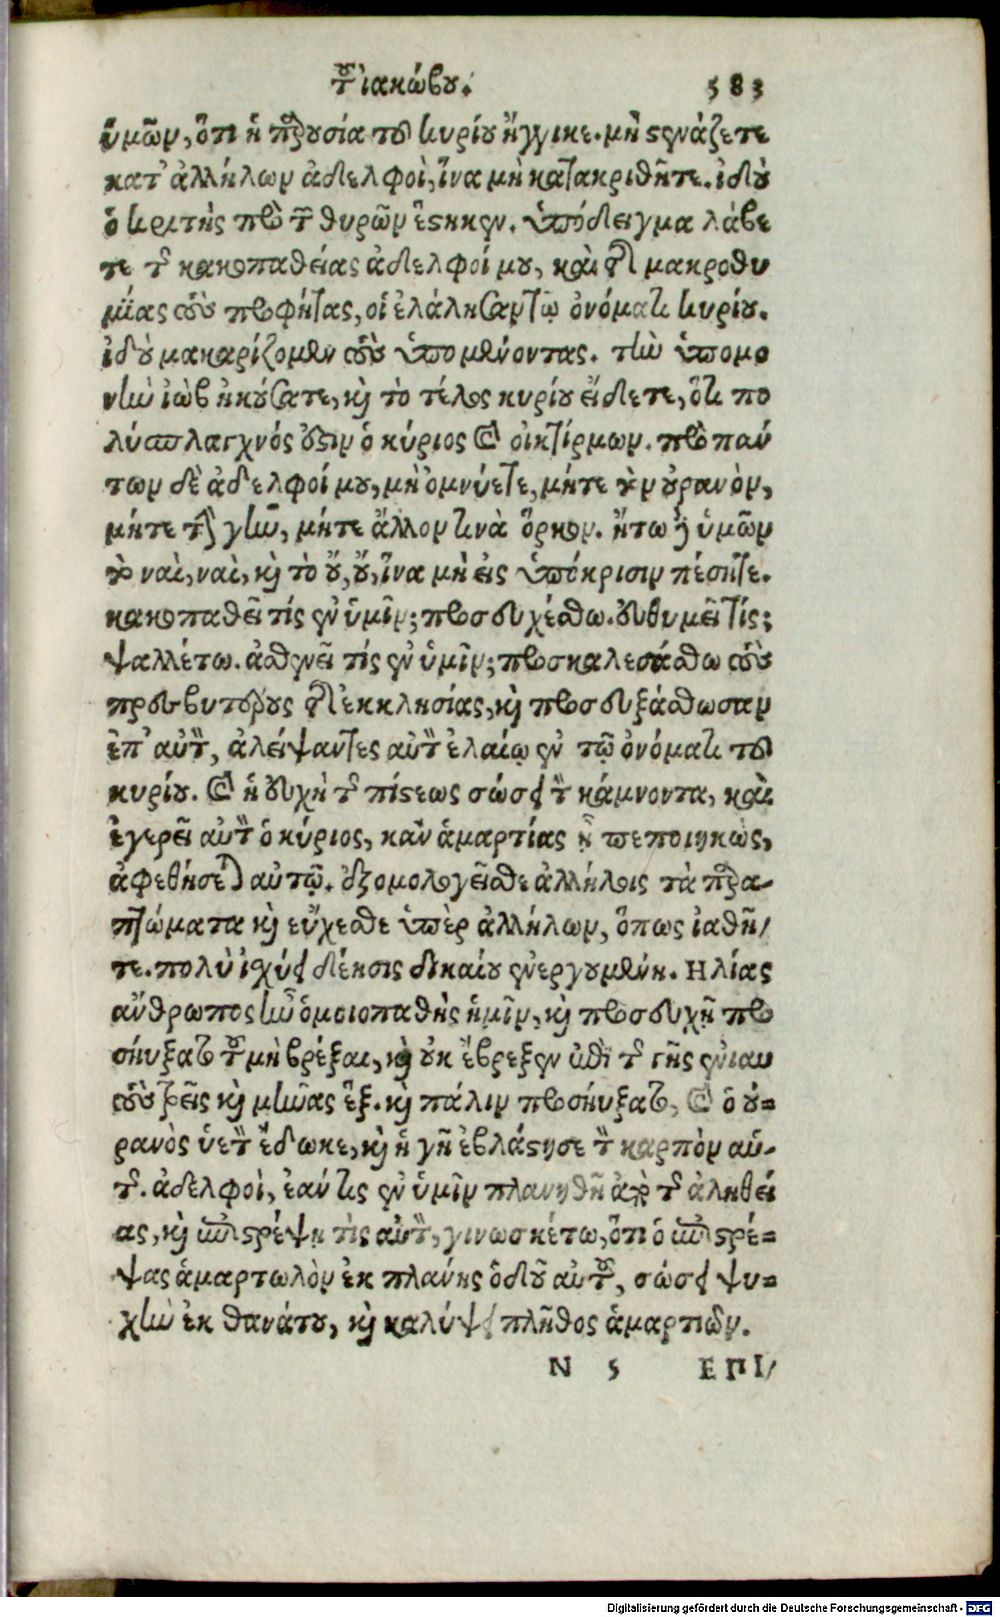 τοῦ ἰακώβου. 583
ὑμῶν, ὅτι ἡ παρουσία τοῦ κυρίου ἤγγικε. μὴ στενάζετε
κατ' ἀλλήλων ἀδελφοὶ, ἵνα μὴ κατακριθῆτε. ἰδοὺ
ὁ κριτὴς πρὸ τῶν θυρῶν ἕστηκεν. ὑπόδειγμα λάβε
τε τῆς κακοπαθείας ἀδελφοί μου, καὶ τῆς μακροθυ
μίας τοὺς προφήτας, οἳ ἐλάλησαν τῷ ὀνόματι κυρίου.
ἰδοὺ μακαρίζομεν τοὺς ὑπομένοντας. τὴν ὑπομο
νὴν ἰὼβ ἠκούσατε, καὶ τὸ τέλος κυρίου εἴδετε, ὅτι πο
λύσπλαγχνός ἐστιν ὁ κύριος καὶ οἰκτίρμων. πρὸ πάν
των δὲ ἀδελφοί μου, μὴ ὀμνύετε, μήτε τὸν οὐρανὸν,
μήτε τὴν γῆν, μήτε ἄλλον τινὰ ὅρκον. ἤτω δὲ ὑμῶν
τὸ ναὶ, ναὶ, καὶ τὸ οὔ, οὔ, ἵνα μὴ εἰς ὑπόκρισιν πέσητε.
κακοπαθεῖ τίς ἐν ὑμῖν; προσευχέσθω. εὐθυμεῖ τίς;
ψαλλέτω. ἀσθενεῖ τίς ἐν ὑμῖν; προσκαλεσάσθω τοὺς
πρεσβυτέρους τῆς ἐκκλησίας, καὶ προσευξάσθωσαν
ἐπ' αὐτὸν, ἀλείψαντες αὐτὸν ἐλαίῳ ἐν τῷ ὀνόματι τοῦ
κυρίου. καὶ ἡ εὐχὴ τῆς πίστεως σώσει τὸν κάμνοντα, καὶ
ἐγερεῖ αὐτὸν ὁ κύριος, κἂν ἁμαρτίας ᾖ πεποιηκὼς,
ἀφεθήσεται αὐτῷ. ἐξομολογεῖσθε ἀλλήλοις τὰ παρα-
πτώματα καὶ εὔχεσθε ὑπὲρ ἀλλήλων, ὅπως ἰαθῆ/
τε. πολὺ ἰσχύει δέησις δικαίου ἐνεργουμένη. Ηλίας
ἄνθρωπος ἦν ὁμοιοπαθὴς ἡμῖν, καὶ προσευχῇ προ
σηύξατο τοῦ μὴ βρέξαι, καὶ οὐκ ἔβρεξεν ἐπὶ τῆς γῆς ἐνιαυ
τοὺς τρεῖς καὶ μῆνας ἕξ. καὶ πάλιν προσηύξατο, καὶ ὁ οὐ=
ρανὸς ὑετὸν ἔδωκε, καὶ ἡ γῆ ἐβλάστησε τὸν καρπὸν αὑ-
τῆς. ἀδελφοὶ, ἐάν τις ἐν ὑμῖν πλανηθῇ ἀπὸ τῆς ἀληθεί
ας, καὶ ἐπιστρέψῃ τὶς αὐτὸν, γινωσκέτω, ὅτι ὁ ἐπιστρέ=
ψας ἁμαρτωλὸν ἐκ πλάνης ὁδοῦ αὐτοῦ, σώσει ψυ=
χὴν ἐκ θανάτου, καὶ καλύψει πλῆθος ἁμαρτιῶν.
N 5 ΕΠΙ/
Digitalisierung gefördert durch die Deutsche Forschungsgemeinschaft - DFG